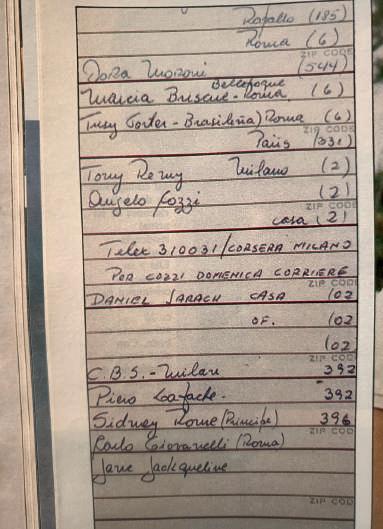 Rapallo (185)
Roma (6)
ZIP CODE
Dora Moroni (544)
Bellefoque
Marcia Briscue - Roma (6)
Tusy Forter - Brasileria) Roma (6)
ZIP CODE
Paris (331)
Tony Remy Milano (2)
Angelo Cozzi (2)
ZIP CODE
casa (2)
Telex 310031/CORSERA MILANO
POR COZZI DOMENICA CORRIERE
ZIP COD
DANIEL JARACH CASA (02
OF. (02
ZIP COD
(02
C.B.S. - Milan 392
Piero 392
Sidney Rome (Principe) 396
ZIP COD
Carlo Giovanelli (Roma)
Jane Jackqueline
ZIP COD